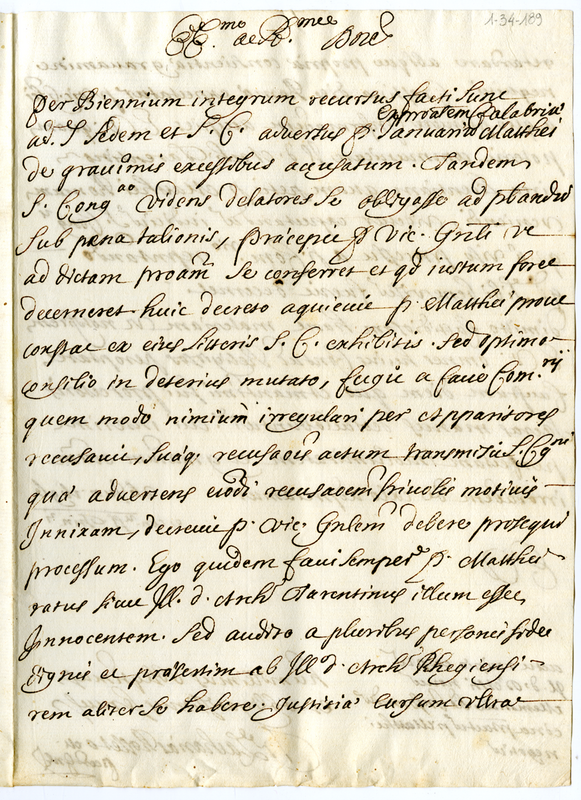 1-34-189
Em.mo ac R.mo D.ne
per Biennium integrum recursus facti sunt
ad S. Sedem et S. C. adversus p. Januariũ Matthei
Exproãlem Calabriæ
de gravimis excessibus accusatum. Tandem
S. Cong.ao videns delatores se obligasse ad pbandũ
sub pœna talionis, præcepit p Vic. Gnli ut
ad dictam proãm se conferret et qd iustum foret
decerneret huic decreto aquievit p. Matthei prout
constat ex eius litteris S. C. exhibitis. Sed optimo
consilio in deterius mutato, fugit a facie Com.rij
quem modo nimium irregulari per Apparitores
recusavit, suãq. recusaõis actum transmisit S. Cg.ni
quæ advertens eiõdi recusaõem frivolis motivis
Innixam, decrevit p. Vic. Gnlem debere prosequi
processum. Ego quidem favi semper p. Matthei
ratus sicut Ill. d. Arch Tarentinus illum esse
Innocentem. Sed audito a pluribus personis fide
dignis et præsertim ab Ill d. Arch Rhegiensi
rem aliter se habere. Justitiæ cursum ultra